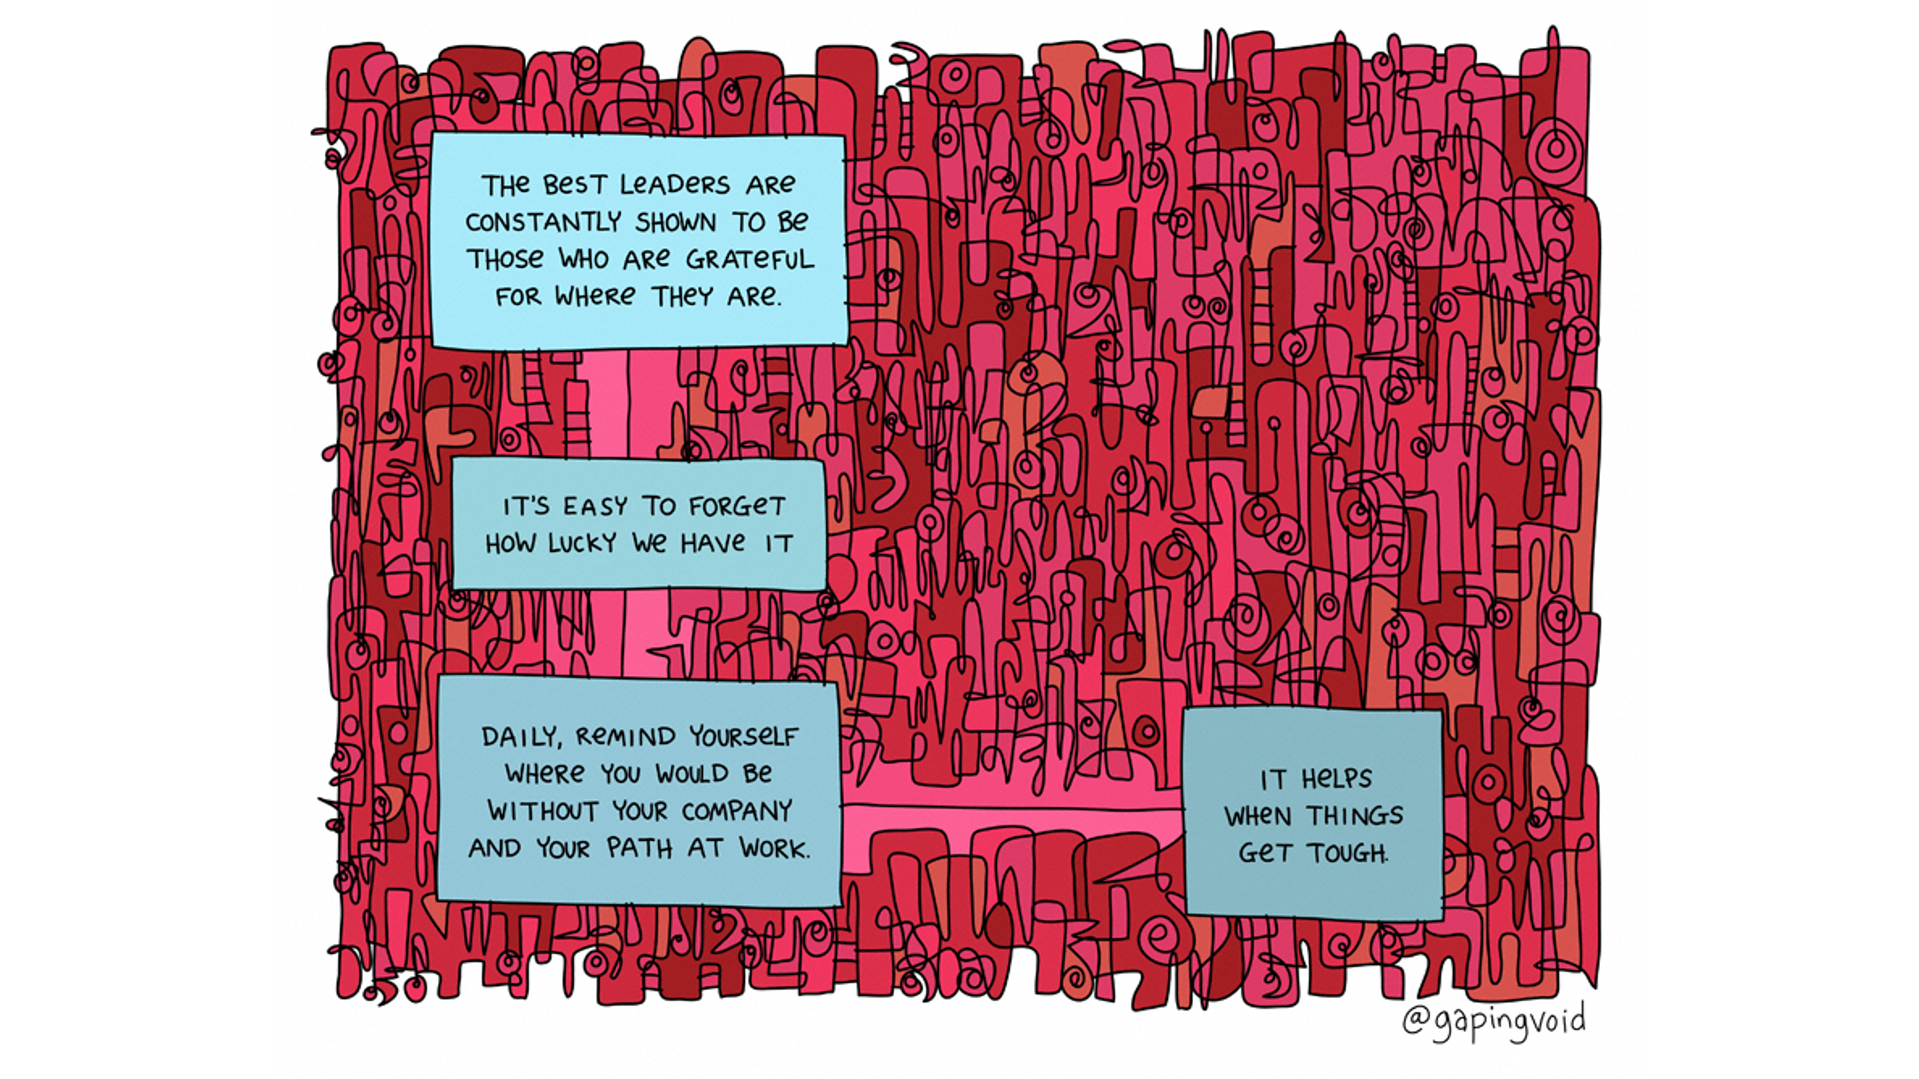 THE BEST LEADERS ARE
CONSTANTLY SHOWN TO BE
THOSE WHO ARE GRATEFUL
FOR WHERE THEY ARE.
IT'S EASY TO FORGET
HOW LUCKY WE HAVE IT
DAILY, REMIND YOURSELF
WHERE YOU WOULD BE
WITHOUT YOUR COMPANY
AND YOUR PATH AT WORK.
IT HELPS
WHEN THINGS
GET TOUGH.
@gapingvoid